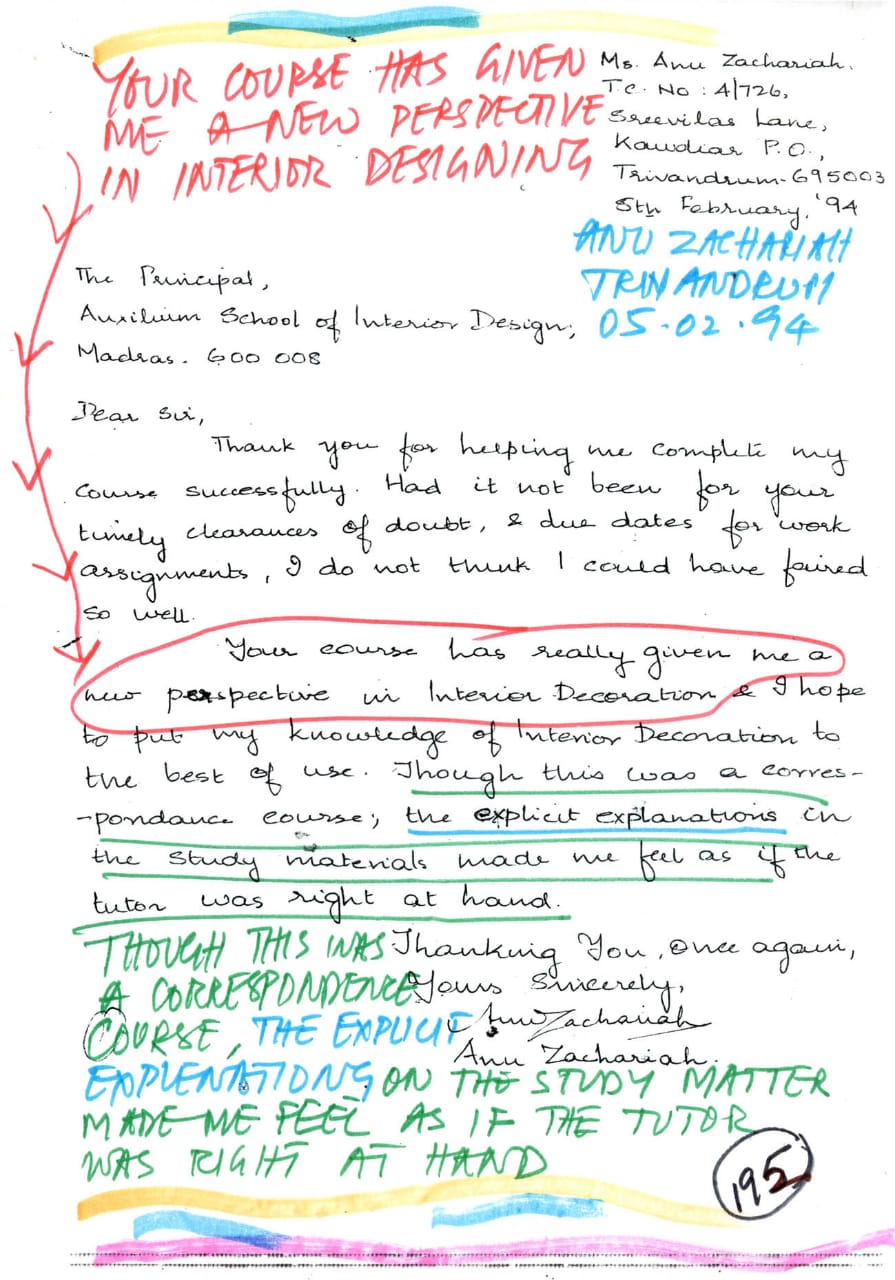 YOUR COURSE HAS GIVEN
ME A NEW PERSPECTIVE
IN INTERIOR DESIGNING
Ms. Anu Zachariah.
T.C. No : 4/726,
Sreevilas Lane,
Kawdiar P.O.,
Trivandrum-695003
5th February, '94
ANU ZACHARIAH
TRIVANDRUM
05.02.94
The Principal,
Auxilium School of Interior Design,
Madras. 600 008
Dear Sir,
Thank you for helping me complete my
course successfully. Had it not been for your
timely clearances of doubt, & due dates for work
assignments, I do not think I could have faired
so well.
Your course has really given me a
new perspective in Interior Decoration & I hope
to put my knowledge of Interior Decoration to
the best of use. Though this was a corres-
-pondance course; the explicit explanations in
the study materials made me feel as if the
tutor was right at hand.
Thanking You, once again,
Yours Sincerely,
Anu Zachariah
Anu Zachariah.
THOUGH THIS WAS
A CORRESPONDENCE
COURSE, THE EXPLICIT
EXPLENATIONS ON THE STUDY MATTER
MADE ME FEEL AS IF THE TUTOR
WAS RIGHT AT HAND
195